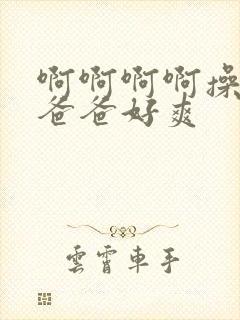 啊啊啊啊操
爸爸好爽
雲霄車手